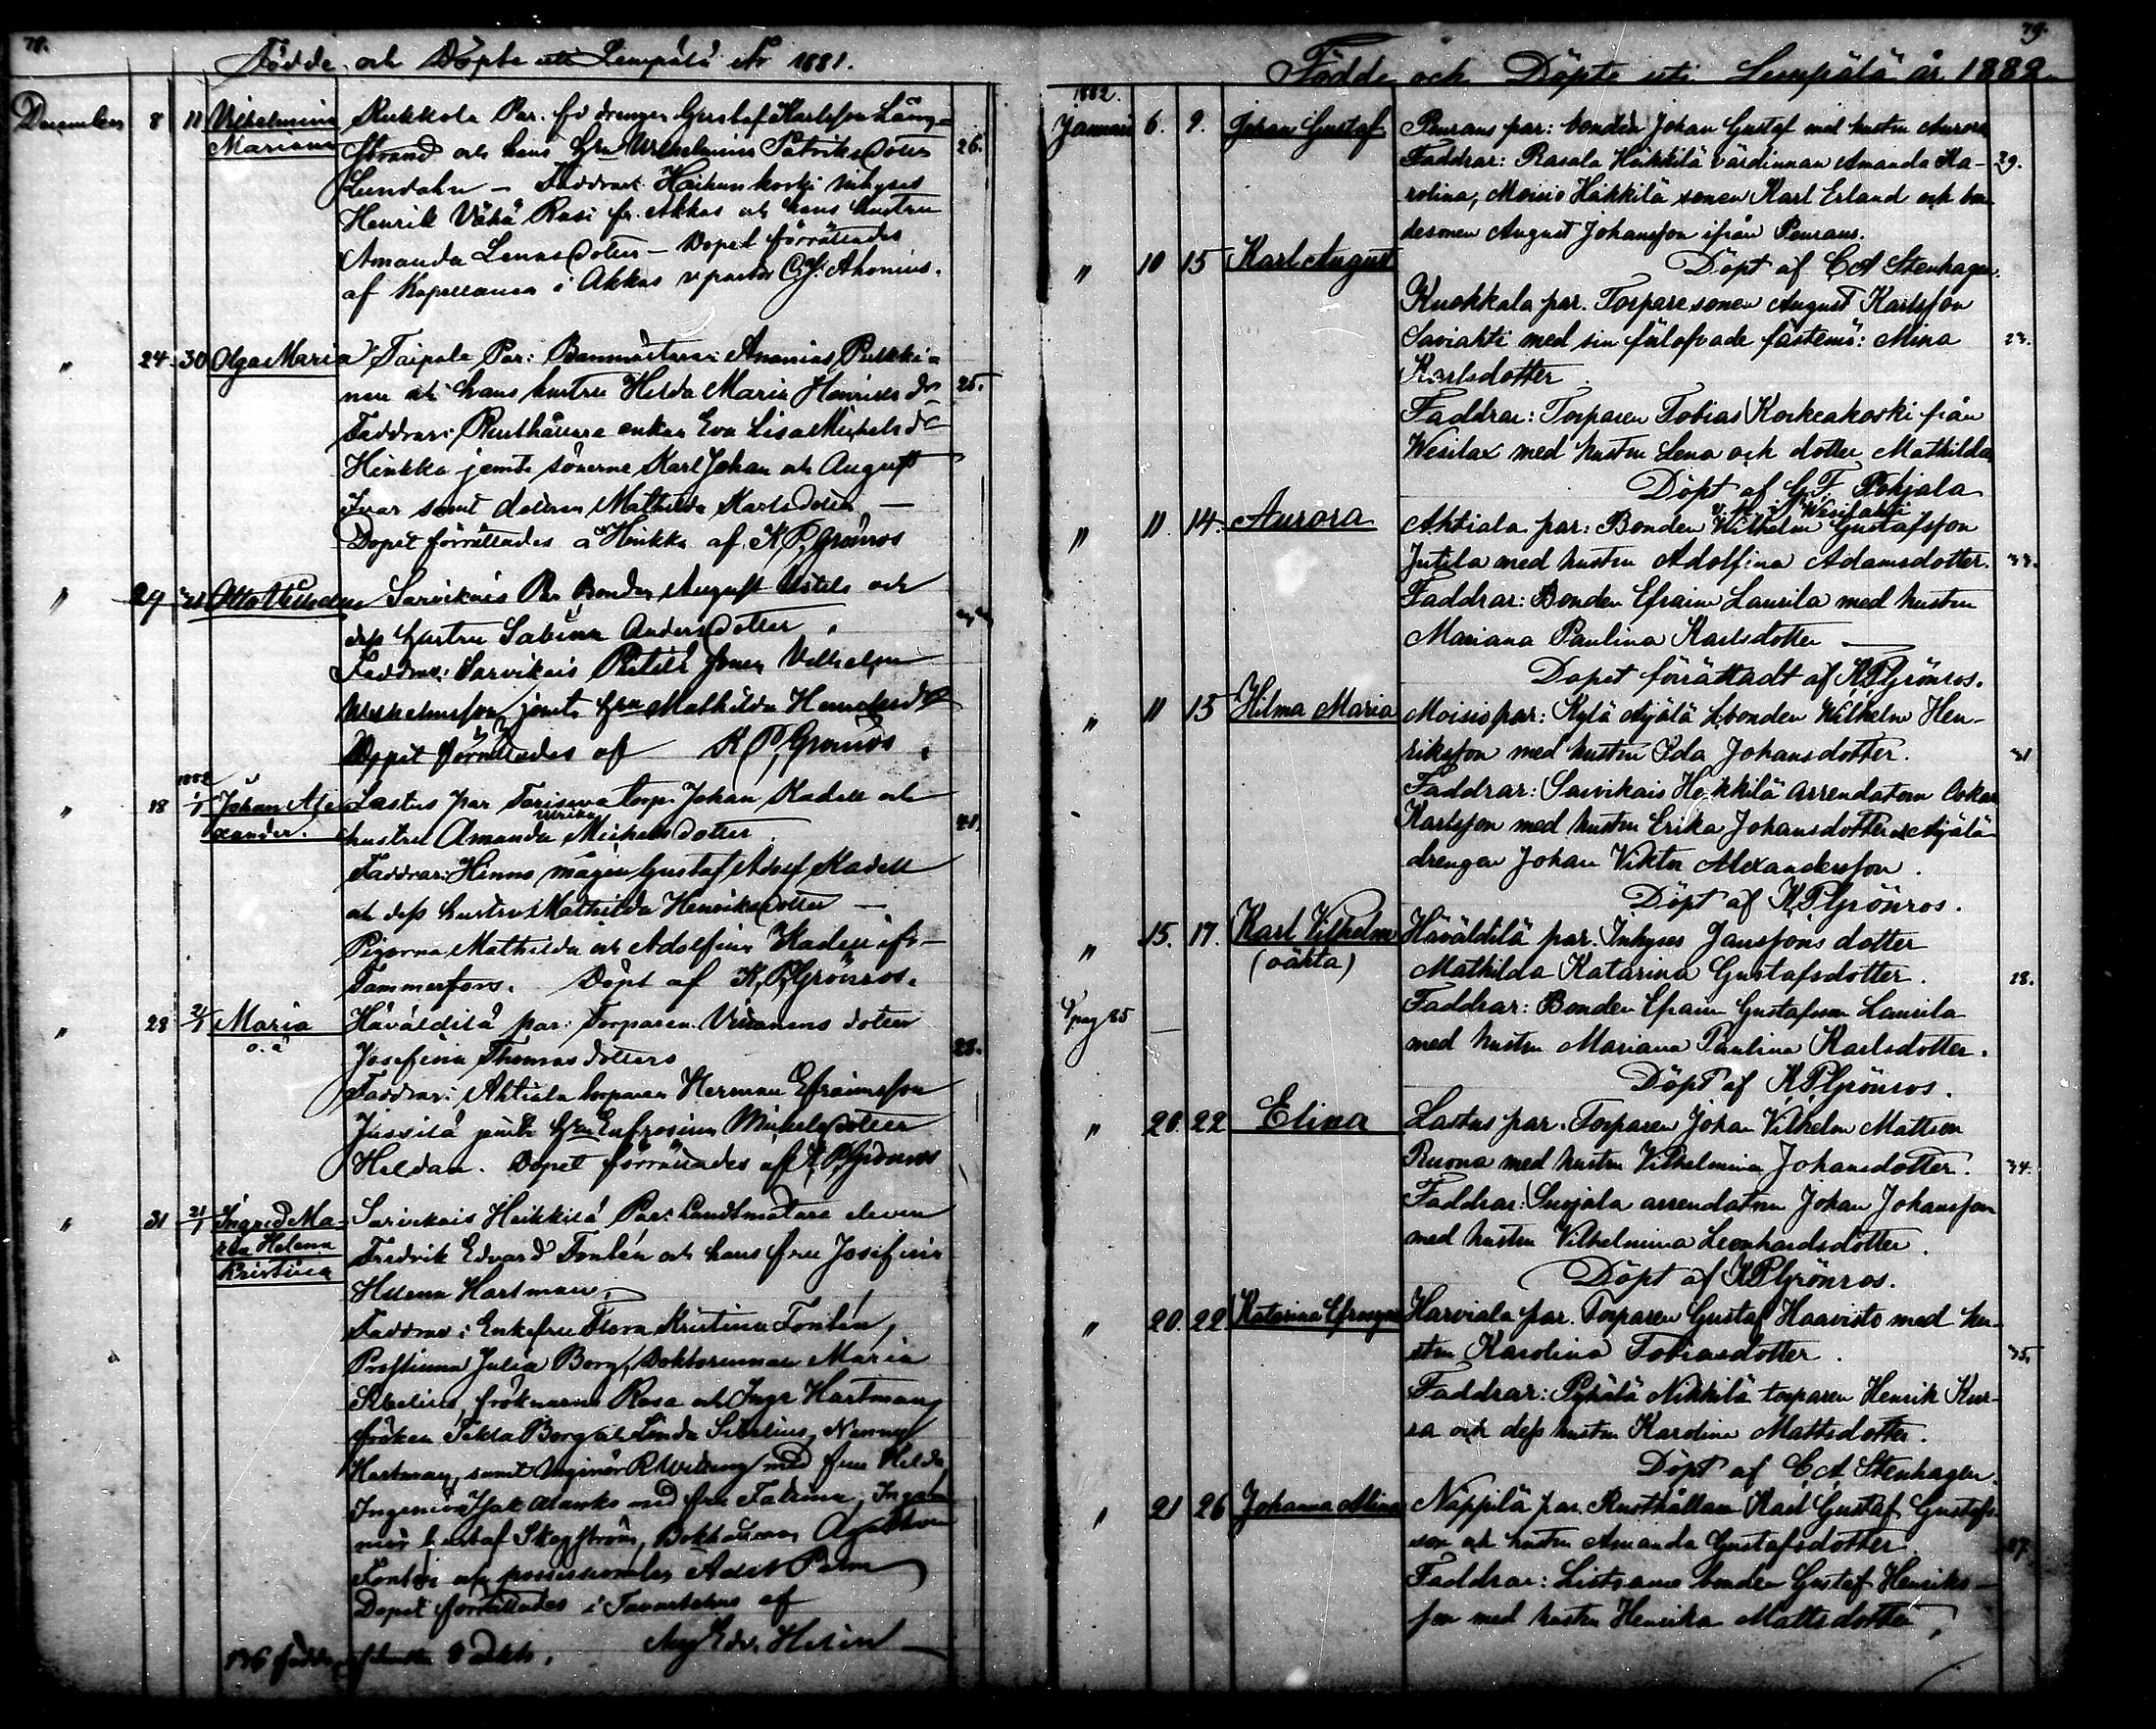 78.
Födde och Döpte uti Lempälä år 1881.
December 8 11 Vilhelmina Kukkola Par. fd drengen Gustaf Karlsson Läng-
Mariana strand och hans hru Wilhelmina Patriksdotter 26.
Lundahn — Faddrar: inhyses
Henrik Vähä Rasi fr. Akkas och hans hustru
Amanda Lenasdotter — Dopet förrättades
af Kapellanen i Akkas vpastor Ahonius.
" 24 30 Olga Maria Taipale Par: Banmästaren Ananias Pulkki-
nen och hans hustru Hilda Maria Henriksdr 25.
Faddrar: Rusthållare enkan Eva Lisa Michelsdr
Heinkka jemte sönerne Karl Johan och August
Ivar samt dottren Mathilda Karlsdotter —
Dopet förrättades å Heinkka af K. P. Grönros
" 29 Otto Vilhelm Sarvikais Par Bonden August och
dess hustru Sabina Andersdotter.
Faddrar: Sarvikais sonen Vilhelm
Wilhelmsson jemte hru Mathilda Henriksdr
Dopet förrättades af K. P. Grönros.
1882
" 18 1/1 Johan Ale- Lastus par torp. Johan Kadell och
xander. hustru Amanda Ulrika Michelsdotter 41.
Faddrar: Hinno mågen Gustaf Adolf Kadell
och dess hustru Mathilda Henriksdotter —
Pigorna Mathilda och Adolfina Kadell ifr-
Tammerfors. Döpt af K. P. Grönros.
" 28 2/1 Maria Hävääldilä par: Torparen dotter
o.ä Josefina Thomasdotters 28.
Faddrar: Ahtiala torparen Herman Efraimsson
Jussilä jemte hru Eufrosina Michelsdotter
Heldan. Dopet förrättades af K. P. Grönros
" 31 21/1 Ingrid Ma- Sarvikais Heikkilä Par: Landtmätare eleven
ria Helena Fredrik Edvard Fontén och hans fru Josefina
Kristina Helena Hartman.
Faddrar: Enkefru Flora Kristina Fontén,
Prostinna Julia Borg, Doktorinnan Maria
Sibelius, fröknarne Rosa och Inga Hartman,
fröken Tekla Borg och Linda Sibelius, Nanny
Hartman, samt Ingeniör R. med fru Hilda,
Ingeniör Isak Alanko med fru Fatima, Inge-
niör Gustaf Skogström, Bokhållaren Agathon
Fontén och possessionaten Adolf Palm
Dopet förrättades i Tavastehus af
Aug Edv. Helin —
136 födde 8 oäkta.
79.
Födde och Döpte uti Lempälä år 1882.
1882.
Januari 6. 9. Johan Gustaf Peurans par: bonden Johan Gustaf med hustru Aurora
Faddrar: Rasala Heikkilä värdinnan Amanda Ka- 29.
rolina, Moisio Heikkilä sonen Karl Erland och bon
desonen August Johansson ifrån Peurans.
Döpt af C A Stenhagen.
" 10 15 Karl August
Kuokkala par. Torparesonen August Karlsson
Saviahti med sin förlofvade fästemö: Mina 23.
Karlsdotter.
Faddrar: Torparen Tobias Korkeakoski från
Wesilax med hustru Lena och dotter Mathilda
Döpt af G. F. Pohjala
v. p. i Wesilaks
" 11. 14. Aurora Ahtiala par: Bonden Wilhelm Gustafsson
Jutila med hustru Adolfina Adamsdotter. 33.
Faddrar: Bonden Efraim Laurila med hustru
Mariana Paulina Karlsdotter —
Dopet förrättadt af K. P. Grönros.
" 11 15 Hilma Maria Moisio par: Kylä Äijälä bonden Wilhelm Hen-
riksson med hustru Ida Johansdotter. 31
Faddrar: Sarvikais Heikkilä arrendatorn Oskar
Karlsson med hustru Erika Johansdotter o Äijälä
drengen Johan Viktor Alexandersson.
Döpt af K. P. Grönros.
" 15. 17. Karl Vilhelm Häväldilä par. Inhyses Janssons dotter
(oäkta) Mathilda Katarina Gustafsdotter. 28.
Faddrar: Bonden Efraim Gustafsson Laurila
pag 85 med hustru Mariana Paulina Karlsdotter.
Döpt af K. P. Grönros.
" 20. 22 Elina Lastus par. Torparen Johan Vilhelm Mattsson
Ruona med hustru Vilhelmina Johansdotter. 34.
Faddrar: Survjala arrendatorn Johan Johansson
med hustru Vilhelmina Leonhardsdotter.
Döpt af K P Grönros.
" 20. 22 Katarina Efrosyne Harviala par. Torparen Gustaf Haavisto med hu-
stru Karolina Tobiasdotter. 35.
Faddrar: Pyhälä Nikkilä torparen Henrik Kur-
ra och dess hustru Karolina Mattsdotter.
Döpt af C. A. Stenhagen.
" 21 26 Johanna Alina Näppilä par. Rusthållaren Karl Gustaf Gustafs-
son och hustru Amanda Gustafsdotter. 37.
Faddrar: bonden Gustaf Henriks-
son med hustru Henrika Mattsdotter,